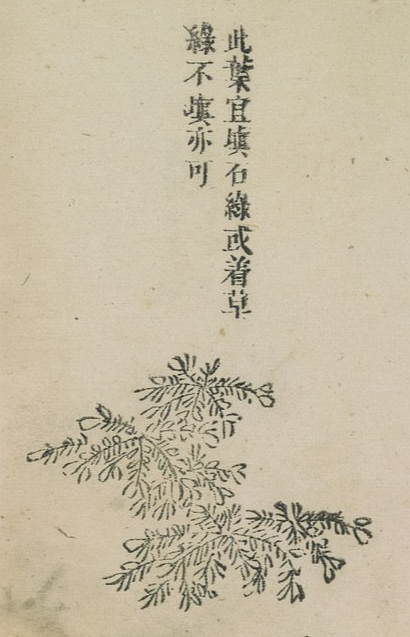 此葉宜填石綠或着草
綠不填亦可